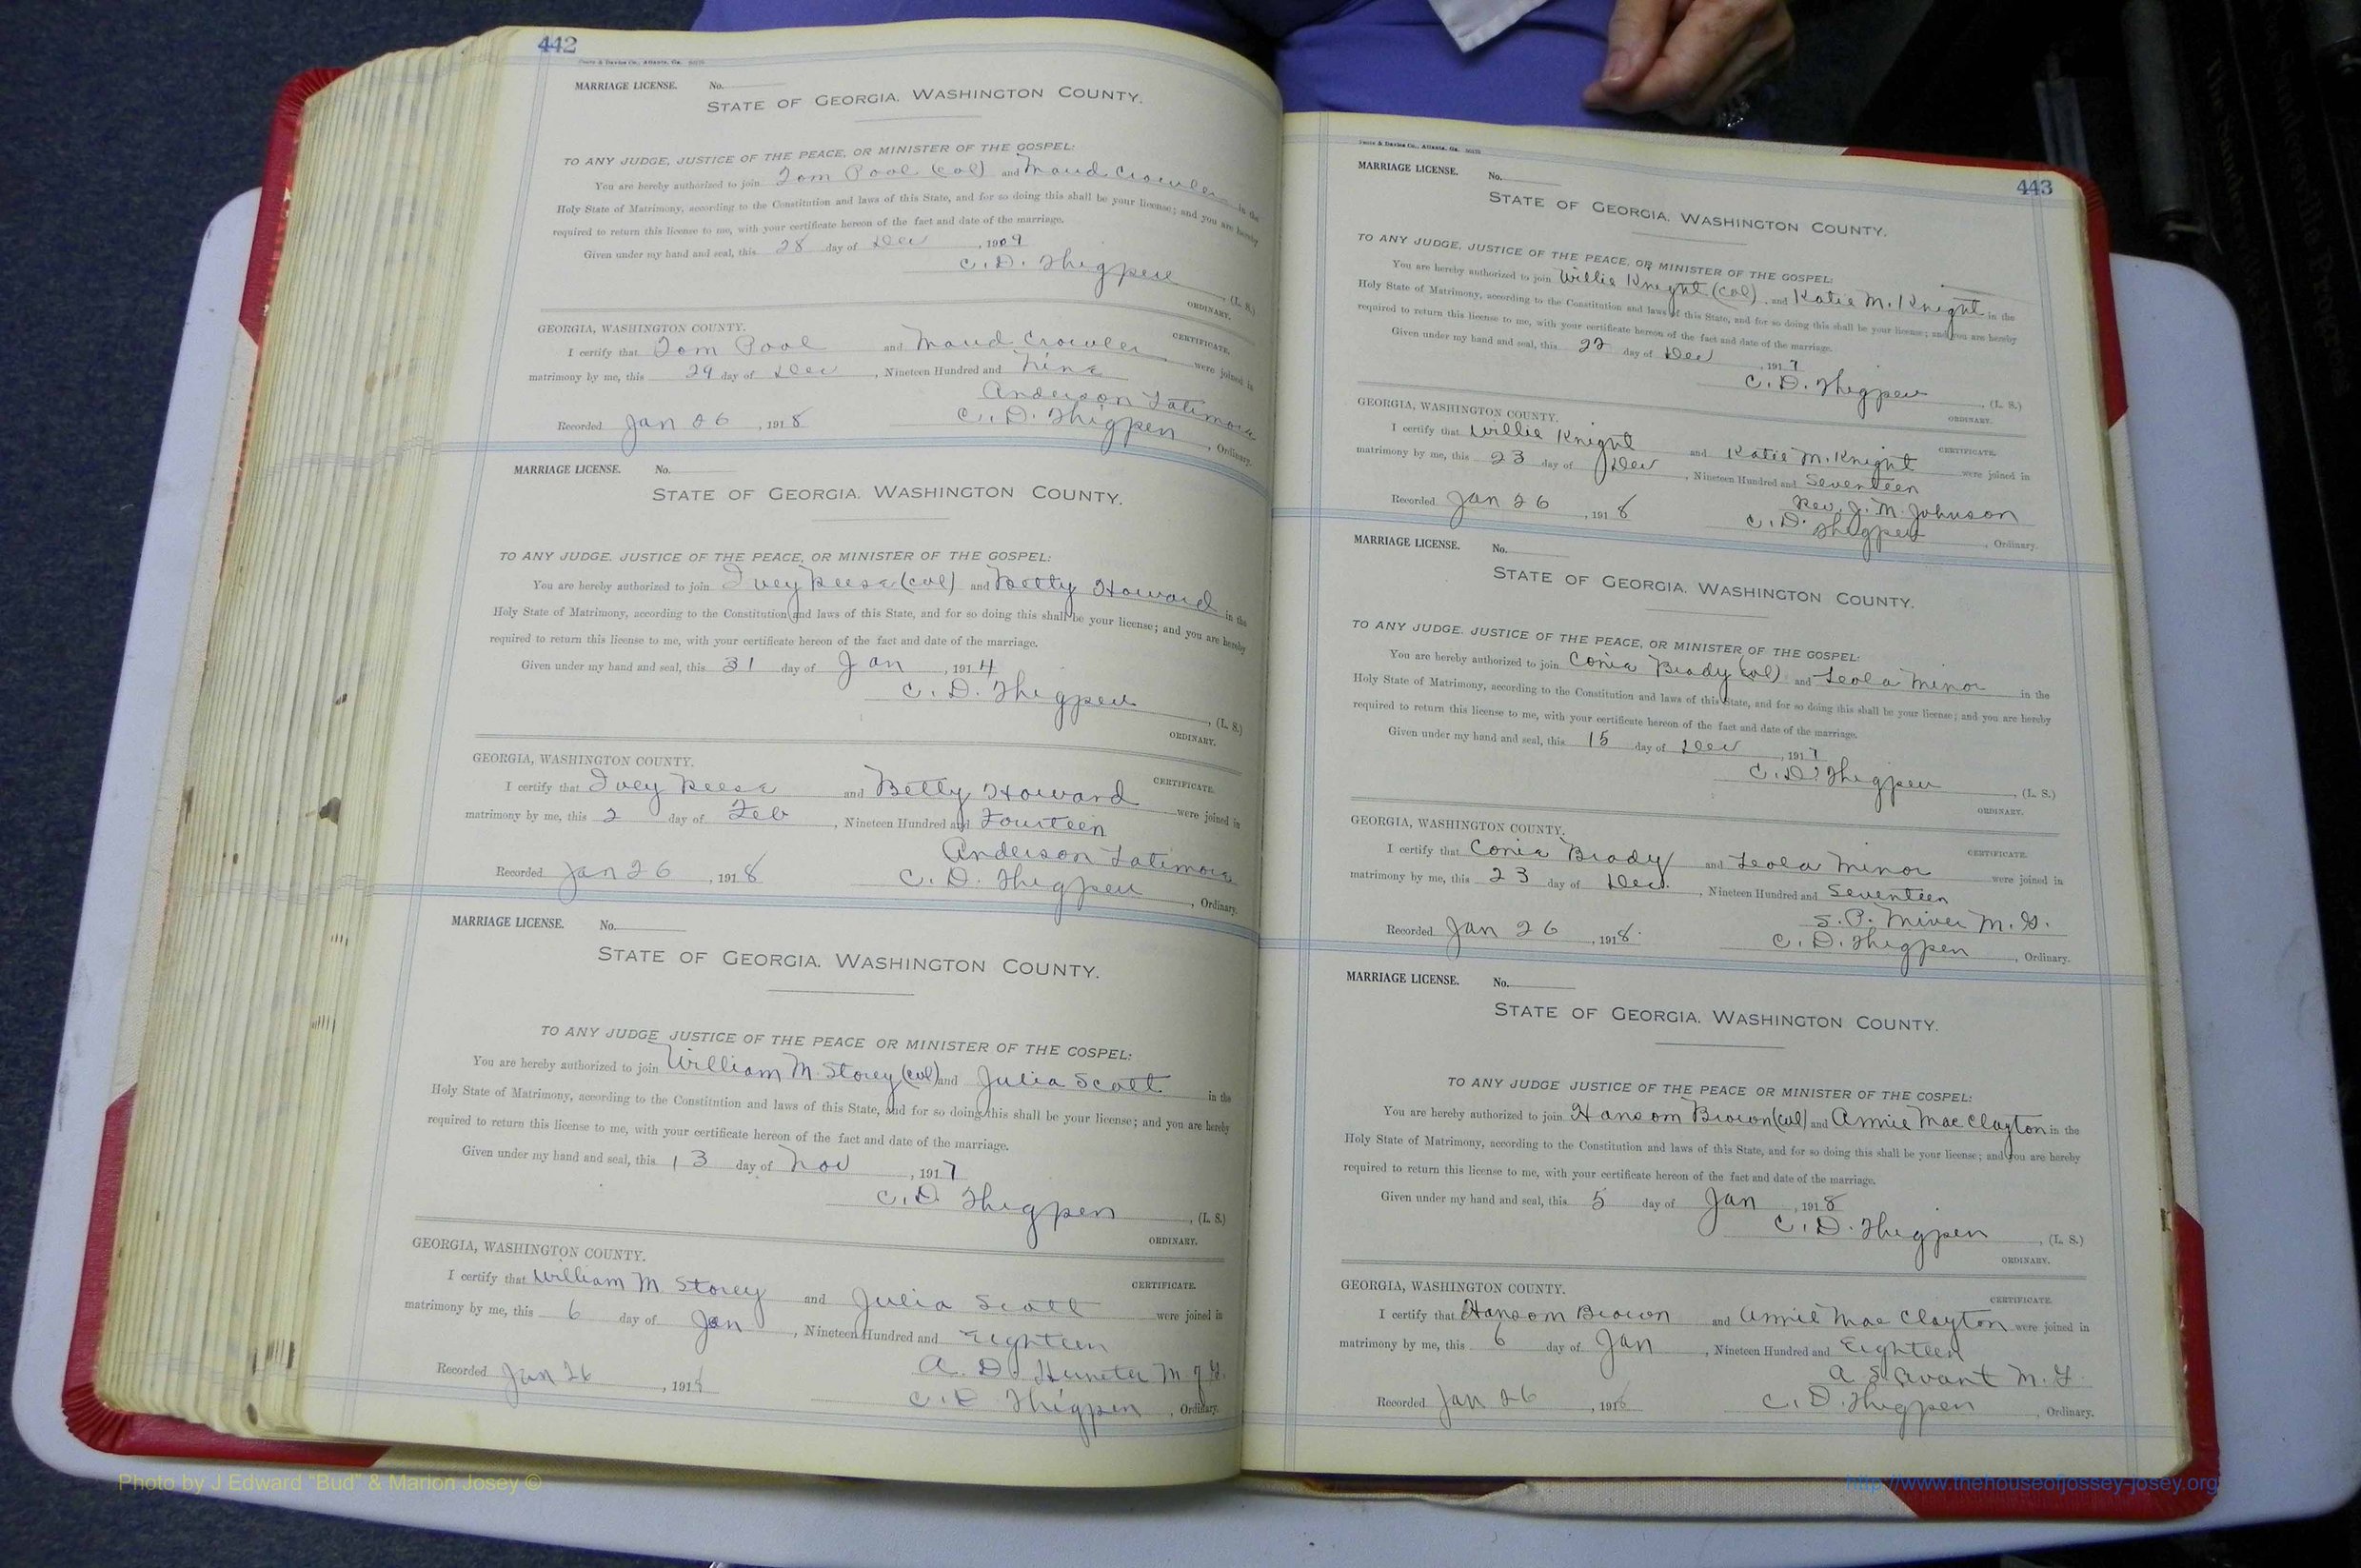 442
MARRIAGE LICENSE. No.
STATE OF GEORGIA, WASHINGTON COUNTY.
TO ANY JUDGE, JUSTICE OF THE PEACE, OR MINISTER OF THE GOSPEL:
You are hereby authorized to join Tom Pool (col) and Maud Crowler in the
Holy State of Matrimony, according to the Constitution and laws of this State, and for so doing this shall be your license; and you are hereby
required to return this license to me, with your certificate hereon of the fact and date of the marriage.
Given under my hand and seal, this 28 day of Dec, 1909
C. D. Thigpen, (L. S.)
ORDINARY.
GEORGIA, WASHINGTON COUNTY.
CERTIFICATE.
I certify that Tom Pool and Maud Crowler were joined in
matrimony by me, this 29 day of Dec, Nineteen Hundred and Nine
Anderson Latimore
Recorded Jan 26, 1918 C. D. Thigpen, Ordinary.
MARRIAGE LICENSE. No.
STATE OF GEORGIA, WASHINGTON COUNTY.
TO ANY JUDGE, JUSTICE OF THE PEACE, OR MINISTER OF THE GOSPEL:
You are hereby authorized to join Ivey Reese (col) and Betty Howard in the
Holy State of Matrimony, according to the Constitution and laws of this State, and for so doing this shall be your license; and you are hereby
required to return this license to me, with your certificate hereon of the fact and date of the marriage.
Given under my hand and seal, this 31 day of Jan, 1914
C. D. Thigpen, (L. S.)
ORDINARY.
GEORGIA, WASHINGTON COUNTY.
CERTIFICATE.
I certify that Ivey Reese and Betty Howard were joined in
matrimony by me, this 2 day of Feb, Nineteen Hundred and Fourteen
Anderson Latimore
Recorded Jan 26, 1918 C. D. Thigpen, Ordinary.
MARRIAGE LICENSE. No.
STATE OF GEORGIA, WASHINGTON COUNTY.
TO ANY JUDGE JUSTICE OF THE PEACE OR MINISTER OF THE GOSPEL:
You are hereby authorized to join William M. Storey (col) and Julia Scott in the
Holy State of Matrimony, according to the Constitution and laws of this State, and for so doing this shall be your license; and you are hereby
required to return this license to me, with your certificate hereon of the fact and date of the marriage.
Given under my hand and seal, this 13 day of Nov, 1917
C. D. Thigpen, (L. S.)
ORDINARY.
GEORGIA, WASHINGTON COUNTY.
CERTIFICATE.
I certify that William M Storey and Julia Scott were joined in
matrimony by me, this 6 day of Jan, Nineteen Hundred and Eighteen
A. D. M. G.
Recorded Jan 26, 1918 C. D. Thigpen, Ordinary.
443
MARRIAGE LICENSE. No.
STATE OF GEORGIA, WASHINGTON COUNTY.
TO ANY JUDGE, JUSTICE OF THE PEACE, OR MINISTER OF THE GOSPEL:
You are hereby authorized to join Willie Knight (col) and Katie M. Knight in the
Holy State of Matrimony, according to the Constitution and laws of this State, and for so doing this shall be your license; and you are hereby
required to return this license to me, with your certificate hereon of the fact and date of the marriage.
Given under my hand and seal, this 22 day of Dec, 1917
C. D. Thigpen, (L. S.)
ORDINARY.
GEORGIA, WASHINGTON COUNTY.
CERTIFICATE.
I certify that Willie Knight and Katie M. Knight were joined in
matrimony by me, this 23 day of Dec, Nineteen Hundred and Seventeen
Rev. J. M. Johnson
Recorded Jan 26, 1918 C. D. Thigpen, Ordinary.
MARRIAGE LICENSE. No.
STATE OF GEORGIA, WASHINGTON COUNTY.
TO ANY JUDGE, JUSTICE OF THE PEACE, OR MINISTER OF THE GOSPEL:
You are hereby authorized to join Conie Brady (col) and Leola Minor in the
Holy State of Matrimony, according to the Constitution and laws of this State, and for so doing this shall be your license; and you are hereby
required to return this license to me, with your certificate hereon of the fact and date of the marriage.
Given under my hand and seal, this 15 day of Dec, 1917
C. D. Thigpen, (L. S.)
ORDINARY.
GEORGIA, WASHINGTON COUNTY.
CERTIFICATE.
I certify that Conie Brady and Leola Minor were joined in
matrimony by me, this 23 day of Dec., Nineteen Hundred and Seventeen
S. P. M. G.
Recorded Jan 26, 1918. C. D. Thigpen, Ordinary.
MARRIAGE LICENSE. No.
STATE OF GEORGIA, WASHINGTON COUNTY.
TO ANY JUDGE JUSTICE OF THE PEACE OR MINISTER OF THE GOSPEL:
You are hereby authorized to join Hansom Brown (col) and Annie Mae Clayton in the
Holy State of Matrimony, according to the Constitution and laws of this State, and for so doing this shall be your license; and you are hereby
required to return this license to me, with your certificate hereon of the fact and date of the marriage.
Given under my hand and seal, this 5 day of Jan, 1918
C. D. Thigpen, (L. S.)
ORDINARY.
GEORGIA, WASHINGTON COUNTY.
CERTIFICATE.
I certify that Hansom Brown and Annie Mae Clayton were joined in
matrimony by me, this 6 day of Jan, Nineteen Hundred and Eighteen
A S Avant M. G
Recorded Jan 26, 1918 C. D. Thigpen, Ordinary.
Photo by J Edward "Bud" & Marion Josey ©
http://www.thehouseofjossey-josey.org